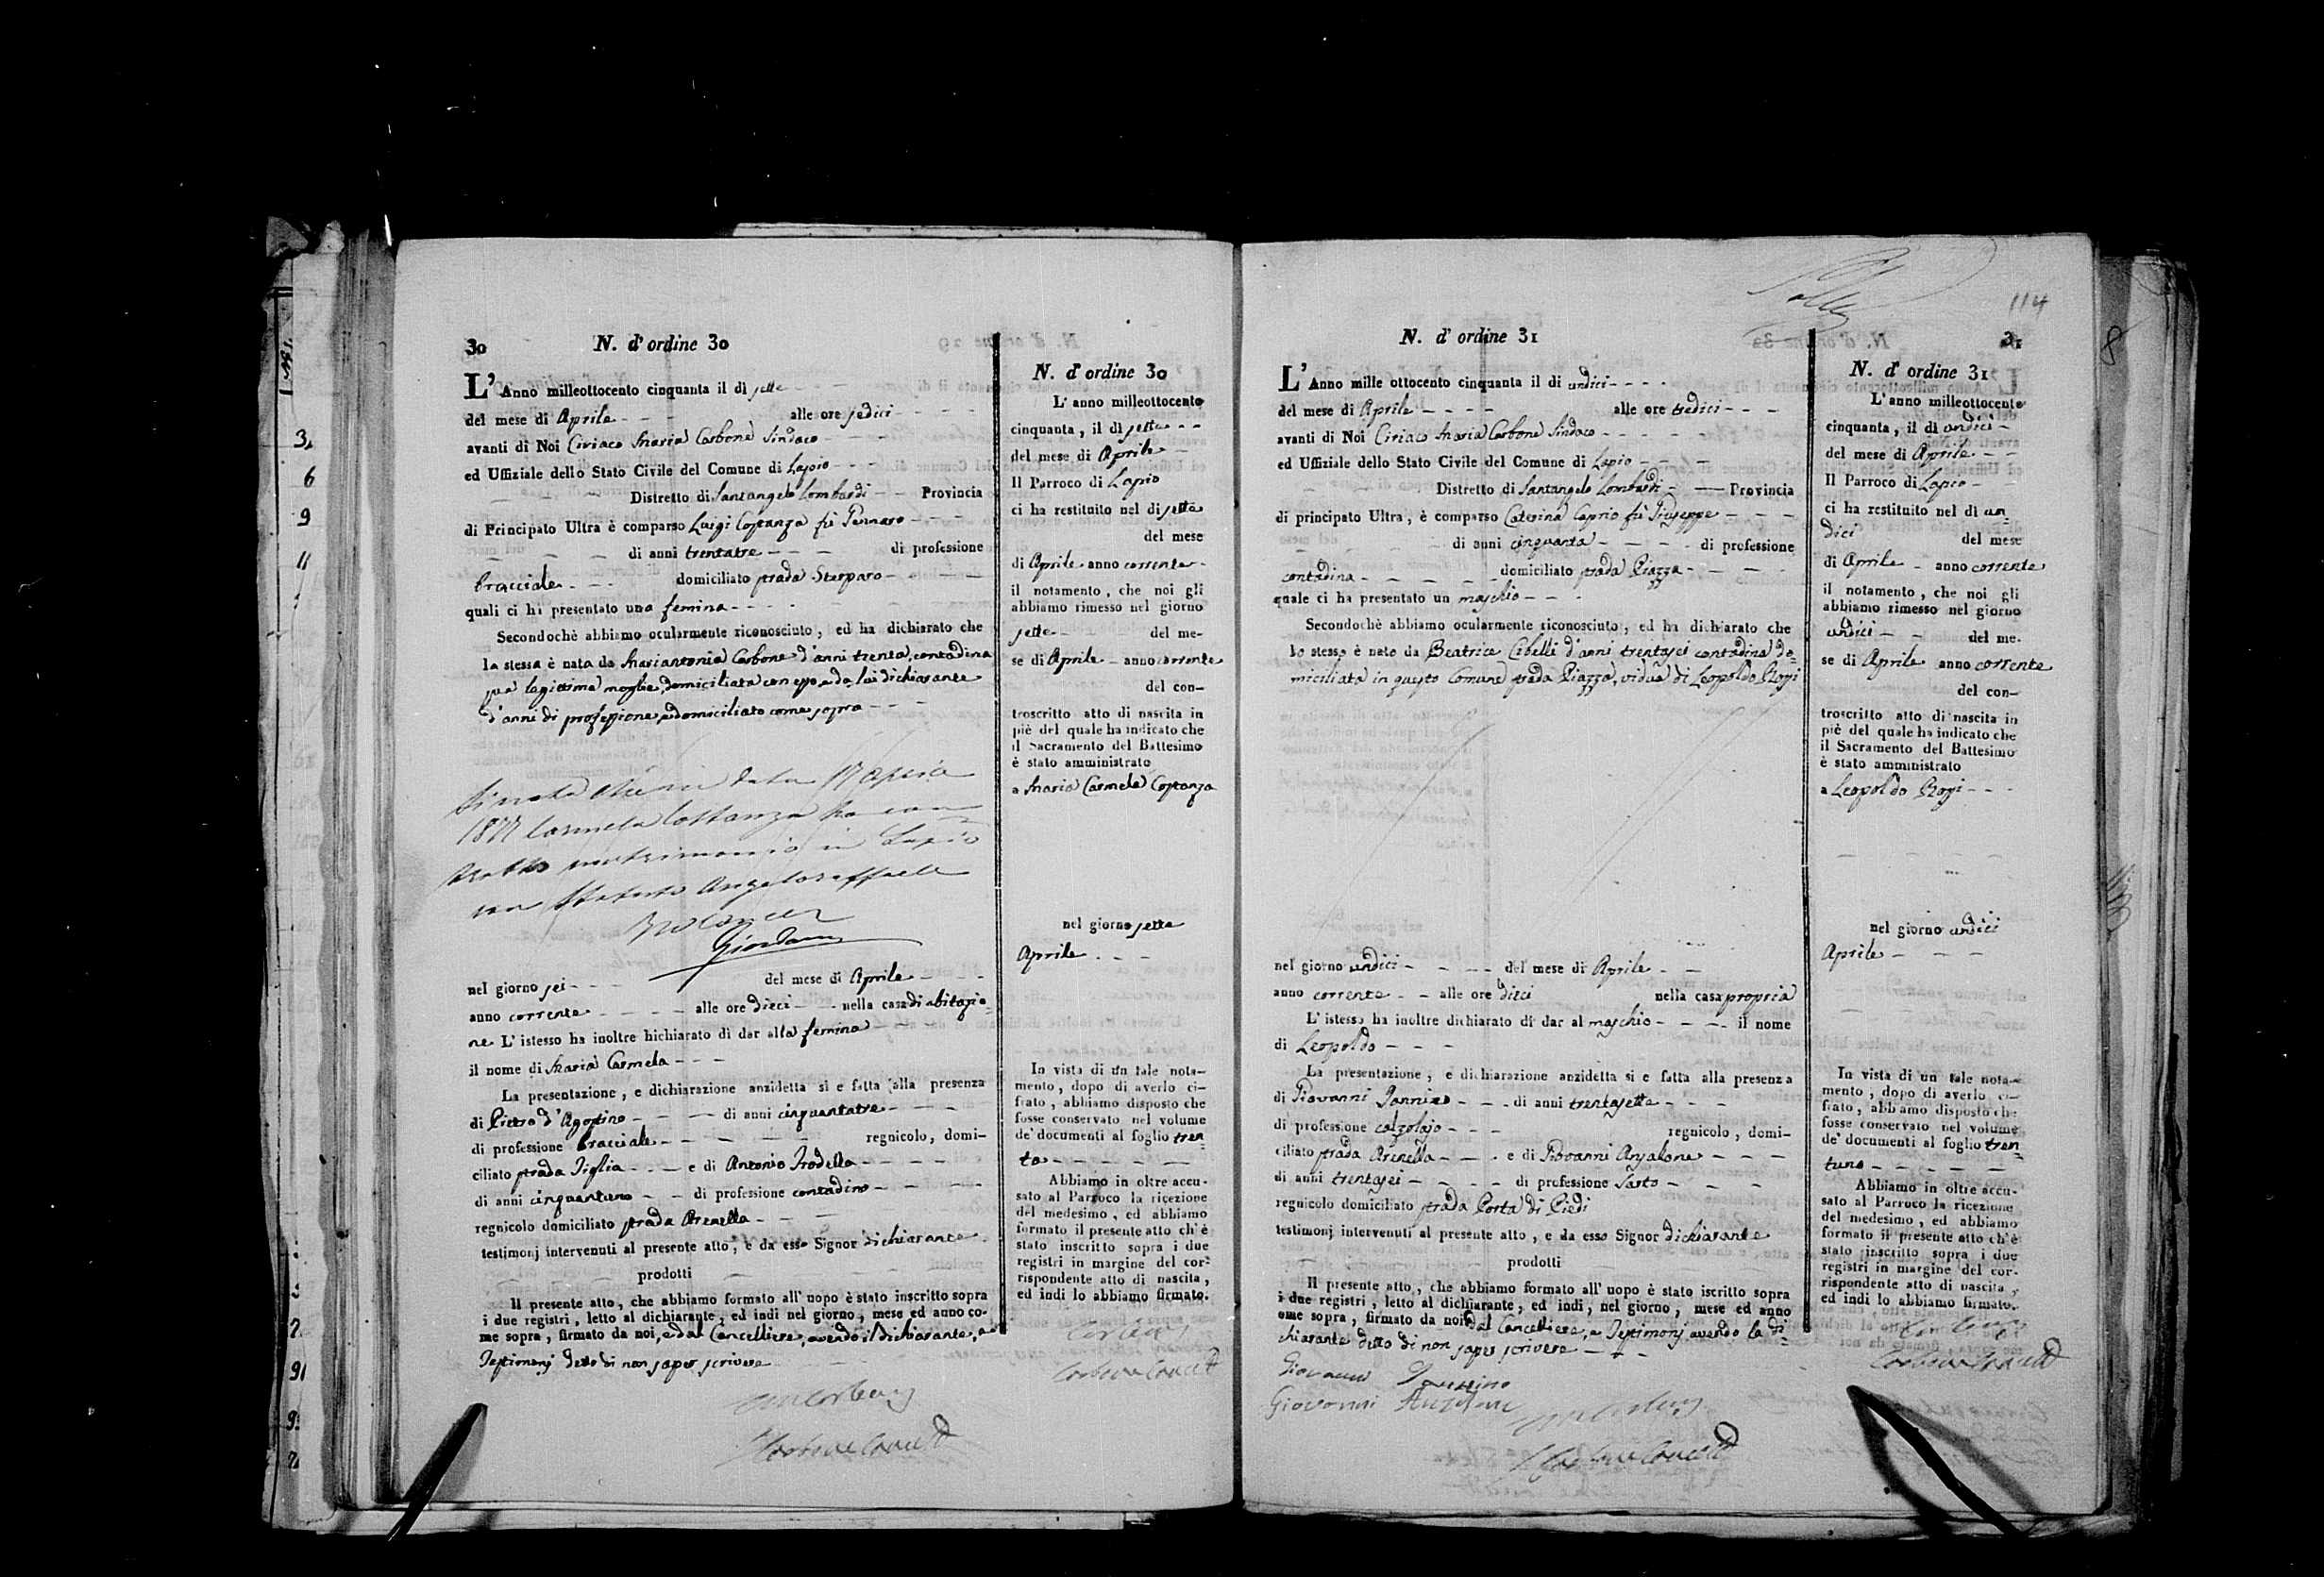 30
N. d' ordine 30
L' Anno milleottocento cinquanta il dì sette
del mese di Aprile alle ore sedici
avanti di Noi Ciriaco Maria Carbone Sindaco
ed Uffiziale dello Stato Civile del Comune di Lapio
Distretto di Santangelo Lombardi Provincia
di Principato Ultra è comparso Luigi Costanza fù Gennaro
di anni trentatre di professione
bracciale domiciliato strada Sterparo
quali ci ha presentato una femina
Secondochè abbiamo ocularmente riconosciuto, ed ha dichiarato che
la stessa è nata da Mariantonia Carbone d'anni trenta, contadina
sua legittima moglie, domiciliata con esso, e da lui dichiarante
d'anni di professione, e domiciliato come sopra
Si nota che in data 17 Aprile
1877 Carmela Costanza ha con
tratto matrimonio in Lapio
con Angeloraffaele
Giordano
nel giorno sei del mese di Aprile
anno corrente alle ore dieci nella casa di abitazio=
ne L' istesso ha inoltre hichiarato di dar alla femina
il nome di Maria Carmela
La presentazione, e dichiarazione anzidetta si e fatta alla presenza
di Pietro d'Agostino di anni cinquantatre
di professione bracciale regnicolo, domi-
ciliato strada Tiglia e di Antonio Trodella
di anni cinquantuno di professione contadino
regnicolo domiciliato strada Arenella
testimonj intervenuti al presente atto, e da esso Signor dichiarante
prodotti
Il presente atto, che abbiamo formato all' uopo è stato inscritto sopra
i due registri, letto al dichiarante, ed indi nel giorno, mese ed anno co-
me sopra, firmato da noi, e dal Cancelliere, avendo il dichiarante, e
Testimonj detto di non saper scrivere
Carbone
Carbone
N. d' ordine 30
L' anno milleottocento
cinquanta, il dì sette
del mese di Aprile
Il Parroco di Lapio
ci ha restituito nel di sette
del mese
di Aprile anno corrente
il notamento, che noi gli
abbiamo rimesso nel giorno
sette del me-
se di Aprile anno corrente
del con-
troscritto atto di nascita in
piè del quale ha indicato che
il Sacramento del Battesimo
è stato amministrato
a Maria Carmela Costanza
nel giorno sette
Aprile
In vista di un tale nota-
mento, dopo di averlo ci-
frato, abbiamo disposto che
fosse conservato nel volume
de' documenti al foglio tren=
ta
Abbiamo in oltre accu-
sato al Parroco la ricezione
del medesimo, ed abbiamo
formato il presente atto ch'è
stato inscritto sopra i due
registri in margine del cor-
rispondente atto di nascita,
ed indi lo abbiamo firmato.
Carbone
114
N. d' ordine 31
31
L' Anno mille ottocento cinquanta il di undici
del mese di Aprile alle ore tredici
avanti di Noi Ciriaco Maria Carbone Sindaco
ed Uffiziale dello Stato Civile del Comune di Lapio
Distretto di Santangelo Lombardi Provincia
di principato Ultra, è comparso Caterina Caprio fù Giuseppe
di anni cinquanta di professione
contadina domiciliato strada Piazza
quale ci ha presentato un maschio
Secondochè abbiamo ocularmente riconosciuto, ed ha dichiarato che
lo stesso è nato da Beatrice Cibelli d'anni trentasei contadina do=
miciliata in questo Comune strada Piazza, vidua di Leopoldo
nel giorno undici del mese di Aprile
anno corrente alle ore dieci nella casa propria
L' istesso ha inoltre dichiarato di dar al maschio il nome
di Leopoldo
La presentazione, e dichiarazione anzidetta si e fatta alla presenza
di Giovanni di anni trentasette
di professione calzolajo regnicolo, domi-
ciliato strada Arenella e di Giovanni Anzalone
di anni trentasei di professione Sarto
regnicolo domiciliato strada Porta di Piedi
testimonj intervenuti al presente atto, e da esso Signor dichiarante
prodotti
Il presente atto, che abbiamo formato all' uopo è stato iscritto sopra
i due registri, letto al dichiarante, ed indi, nel giorno, mese ed anno
ome sopra, firmato da noi, dal Cancelliere, e Testimonj avendo la di=
chiarante detto di non saper scrivere
Giovanni
Giovanni Anzalone
Carbone
N. d' ordine 31
L' anno milleottocento
cinquanta, il di undici
del mese di Aprile
Il Parroco di Lapio
ci ha restituito nel di un=
dici del mese
di Aprile anno corrente
il notamento, che noi gli
abbiamo rimesso nel giorno
undici del me-
se di Aprile anno corrente
del con-
troscritto atto di nascita in
piè del quale ha indicato che
il Sacramento del Battesimo
è stato amministrato
a Leopoldo
nel giorno undici
Aprile
In vista di un tale nota-
mento, dopo di averlo ci-
frato, abbiamo disposto che
fosse conservato nel volume
de' documenti al foglio tren=
tuno
Abbiamo in oltre accu-
sato al Parroco la ricezione
del medesimo, ed abbiamo
formato il presente atto ch'è
stato inscritto sopra i due
registri in margine del cor-
rispondente atto di nascita,
ed indi lo abbiamo firmato.
Carbone